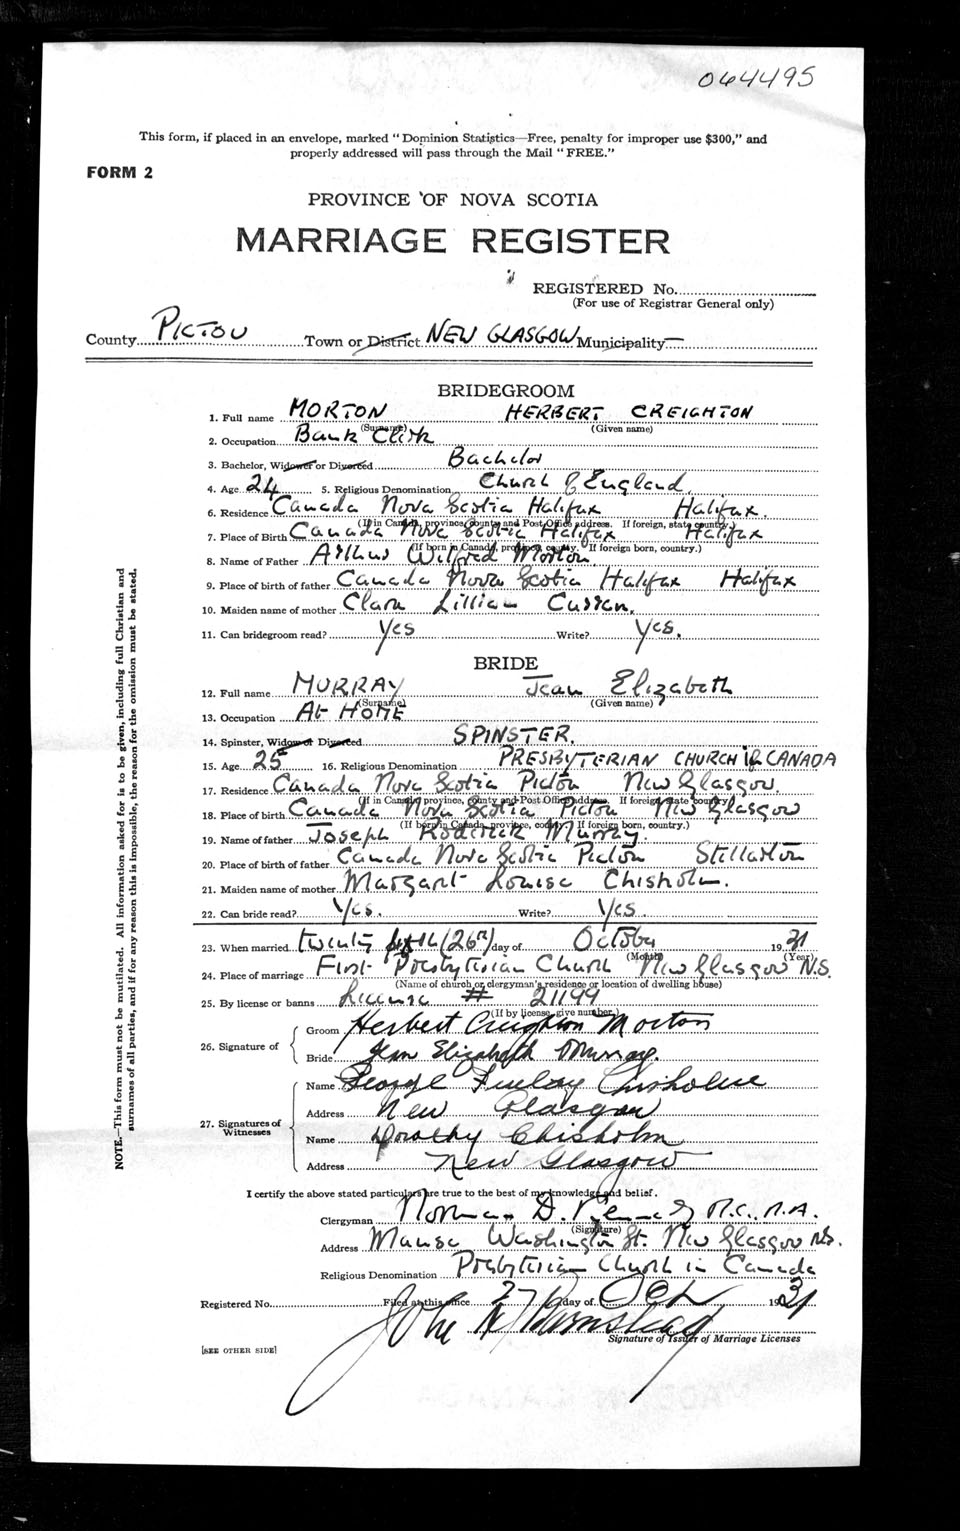 064495
This form, if placed in an envelope, marked "Dominion Statistics—Free, penalty for improper use $300," and
properly addressed will pass through the Mail "FREE."
FORM 2
PROVINCE OF NOVA SCOTIA
MARRIAGE REGISTER
REGISTERED No.
(For use of Registrar General only)
County PICTOU Town or District NEW GLASGOW Municipality —
BRIDEGROOM
1. Full name MORTON HERBERT CREIGHTON
(Surname) (Given name)
2. Occupation Bank Clerk
3. Bachelor, Widower or Divorced Bachelor
4. Age 24 5. Religious Denomination Church of England
6. Residence Canada Nova Scotia Halifax Halifax.
(If in Canada, province, county and Post Office address. If foreign, state country.)
7. Place of Birth Canada Nova Scotia Halifax Halifax
(If born in Canada, province, county. If foreign born, country.)
8. Name of Father Arthur Wilfred Morton.
9. Place of birth of father Canada Nova Scotia Halifax Halifax
10. Maiden name of mother Clara Lillian Curren.
11. Can bridegroom read? Yes Write? Yes.
BRIDE
12. Full name MURRAY Jean Elizabeth
(Surname) (Given name)
13. Occupation At HOME
14. Spinster, Widow or Divorced SPINSTER.
15. Age 25 16. Religious Denomination PRESBYTERIAN CHURCH in CANADA
17. Residence Canada Nova Scotia Pictou New Glasgow.
(If in Canada province, county and Post Office address. If foreign, state country.)
18. Place of birth Canada Nova Scotia Pictou New Glasgow
(If born in Canada, province, county. If foreign born, country.)
19. Name of father Joseph Roderick Murray.
20. Place of birth of father Canada Nova Scotia Pictou Stellarton
21. Maiden name of mother Margaret Louise Chisholm.
22. Can bride read? Yes. Write? Yes
23. When married twenty sixth (26th) day of October 1931
(Month) (Year)
24. Place of marriage First Presbyterian Church New Glasgow N.S.
(Name of church or clergyman's residence or location of dwelling house)
25. By license or banns License # 21199
(If by license, give number.)
26. Signature of
Groom Herbert Creighton Morton
Bride Jean Elizabeth Murray.
27. Signatures of Witnesses
Name George Finlay Chisholm
Address New Glasgow
Name Dorothy Chisholm
Address New Glasgow
I certify the above stated particulars are true to the best of my knowledge and belief.
Clergyman Norman D. Kennedy M.C., M.A.
(Signature)
Address Manse Washington St. New Glasgow N.S.
Religious Denomination Presbyterian Church in Canada
Registered No. Filed at this office 27 day of Oct 1931
John
Signature of Issuer of Marriage Licenses
[SEE OTHER SIDE]
NOTE.—This form must not be mutilated. All information asked for is to be given, including full Christian and
surnames of all parties, and if for any reason this is impossible, the reason for the omission must be stated.